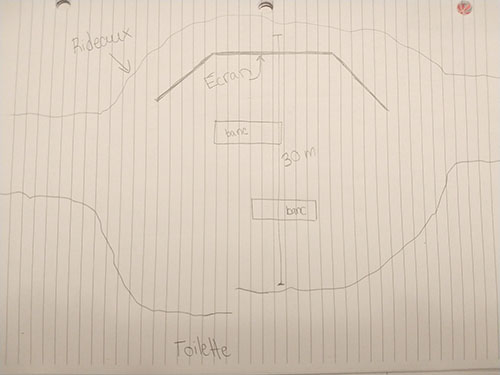 Rideaux
Ecran
banc
30 m
banc
Toilette